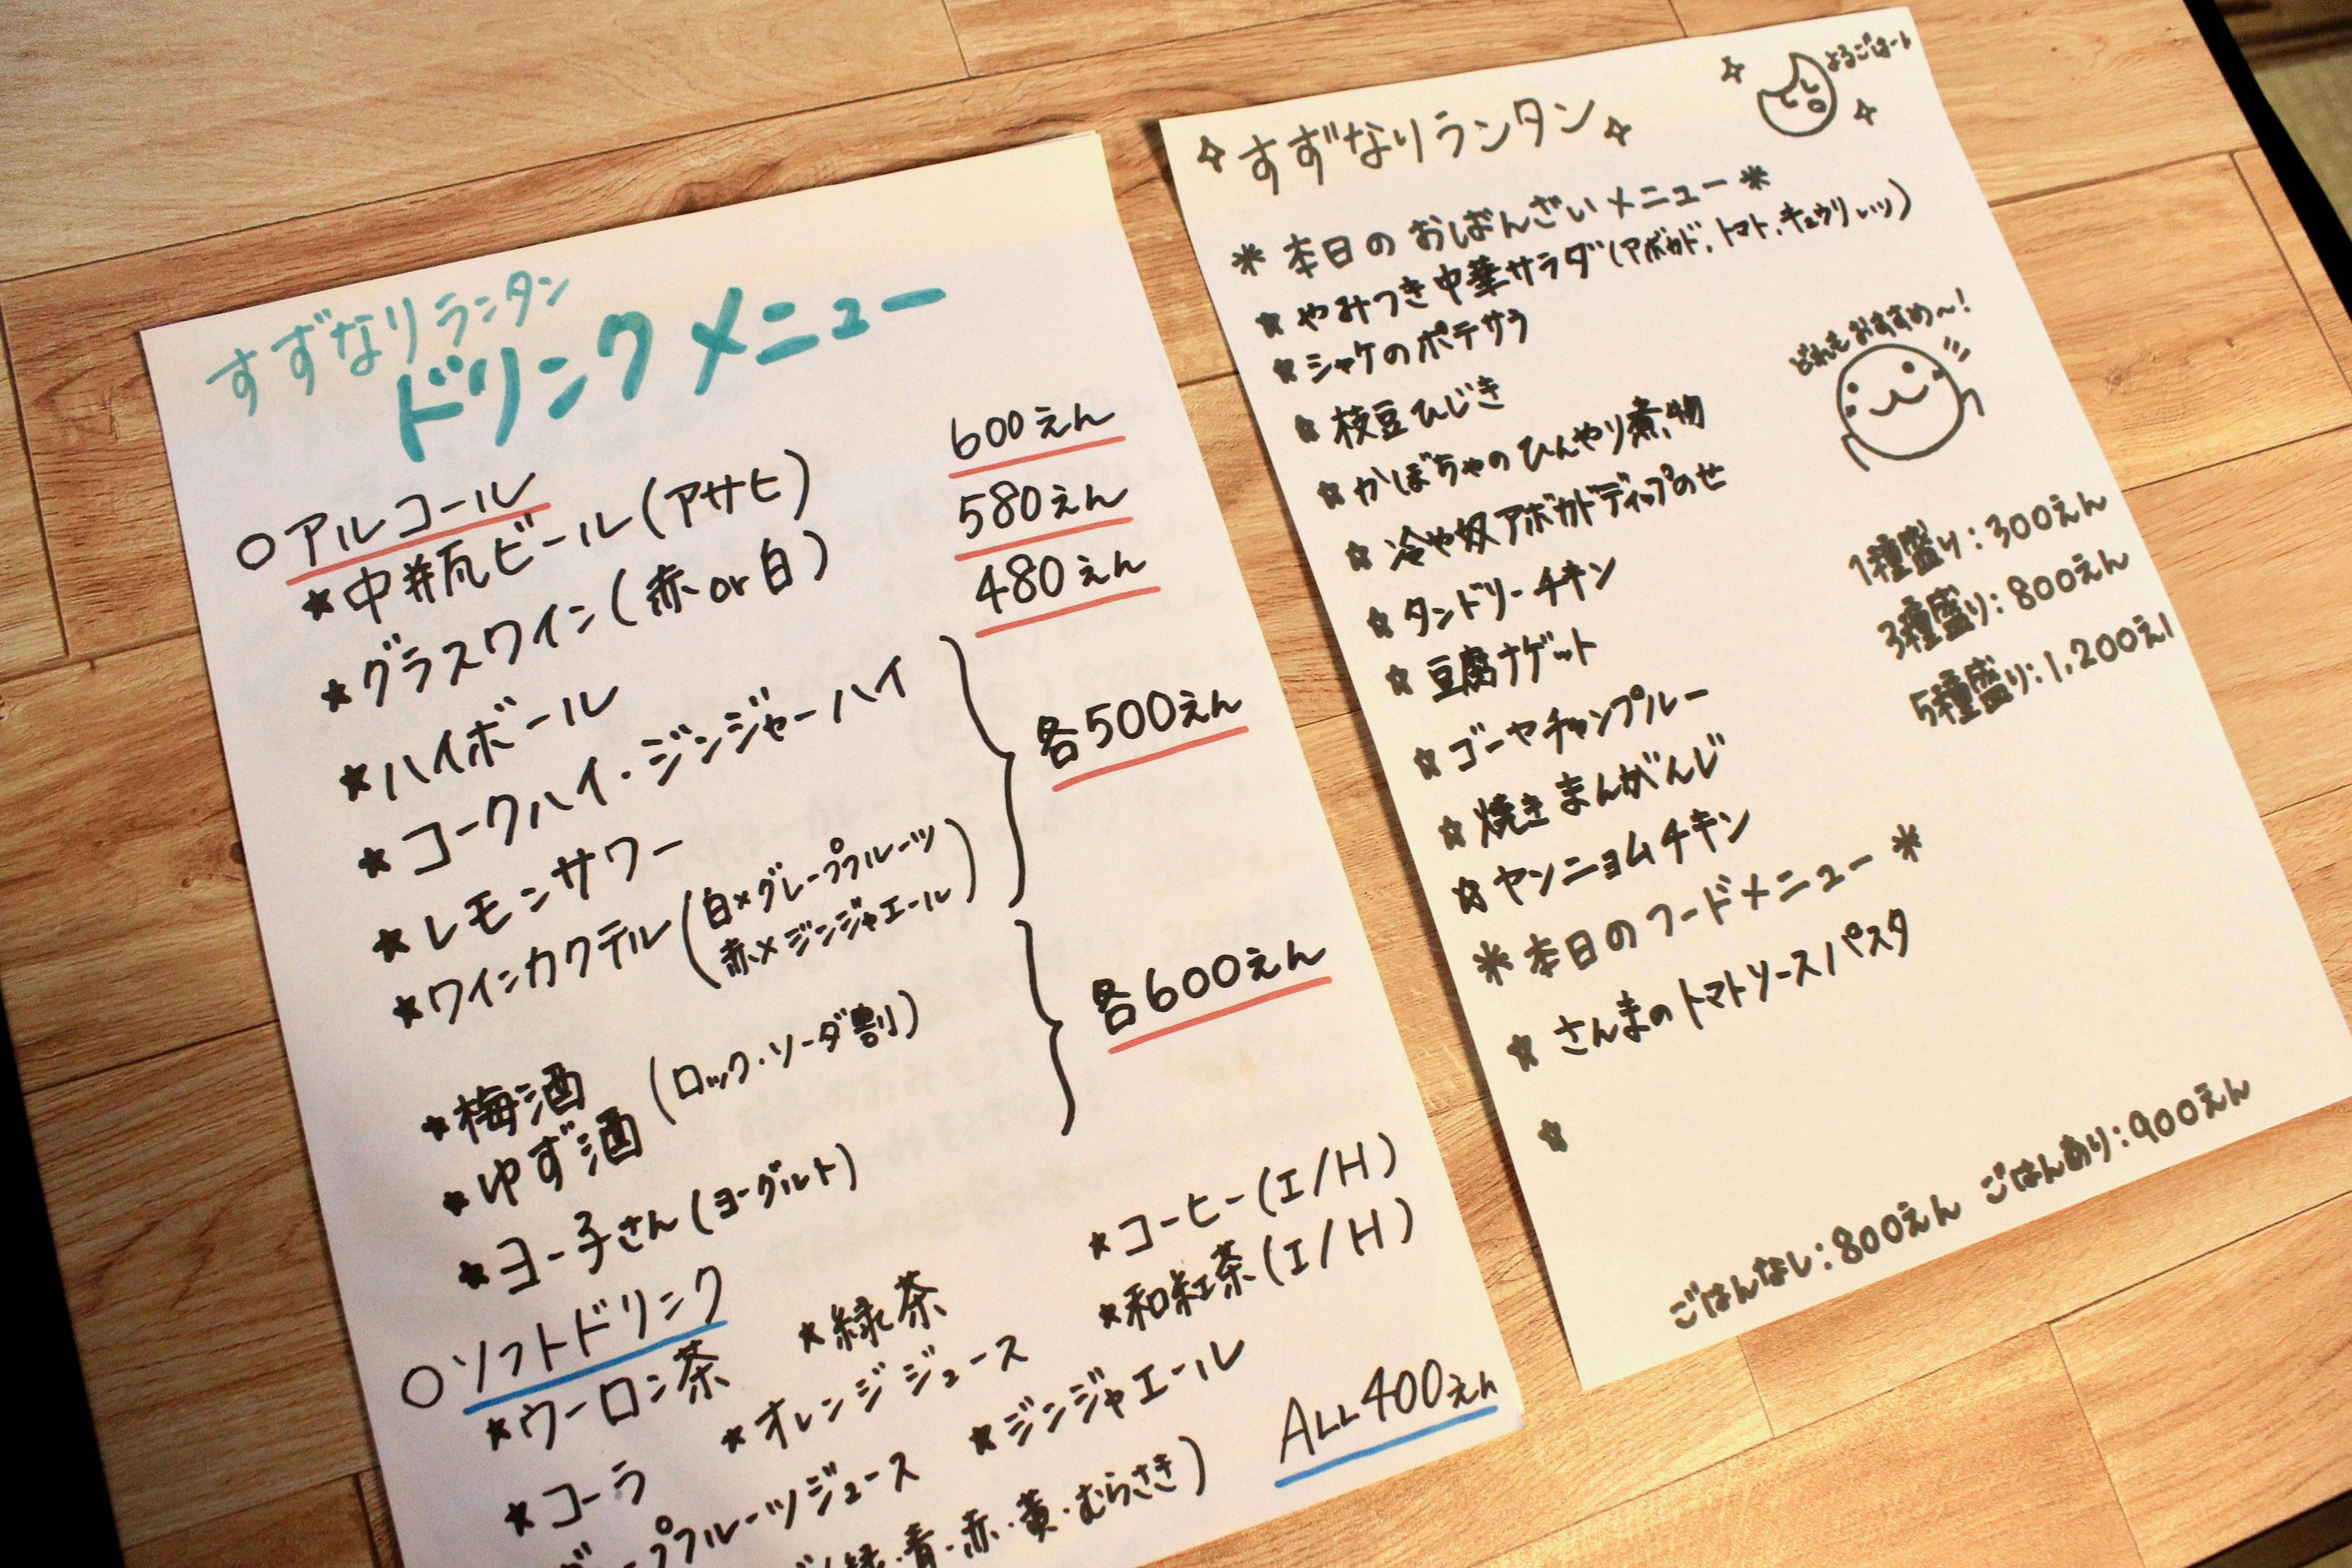 すずなりランタン
ドリンクメニュー
○アルコール
★中瓶ビール(アサヒ) 600えん
★グラスワイン(赤or白) 580えん
★ハイボール 480えん
★コークハイ・ジンジャーハイ
★レモンサワー
各500えん
★ワインカクテル(白×グレープフルーツ
赤×ジンジャエール)
★梅酒
★ゆず酒
(ロック・ソーダ割)
★ヨー子さん(ヨーグルト)
各600えん
○ソフトドリンク
★ウーロン茶 ★緑茶 ★コーヒー(I/H)
★コーラ ★オレンジジュース ★和紅茶(I/H)
グレープフルーツジュース ★ジンジャエール
(緑・青・赤・黄・むらさき)
ALL400えん
すずなりランタン
よるごはーん
*本日のおばんざいメニュー*
★やみつき中華サラダ(アボカド、トマト、キュウリ
★シャケのポテサラ
★枝豆ひじき
★かぼちゃのひんやり煮物
★冷や奴アボカドディップのせ
★タンドリーチキン
★豆腐ナゲット
★ゴーヤチャンプルー
★焼きまんがんじ
★ヤンニョムチキン
どれもおすすめ〜!
1種盛り:300えん
3種盛り:800えん
5種盛り:1,200えん
*本日のフードメニュー*
★さんまのトマトソースパスタ
★
ごはんなし:800えん ごはんあり:900えん